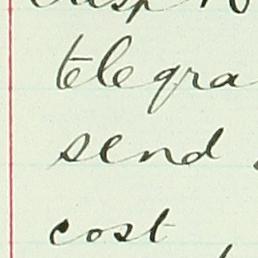 telegra
send
cost